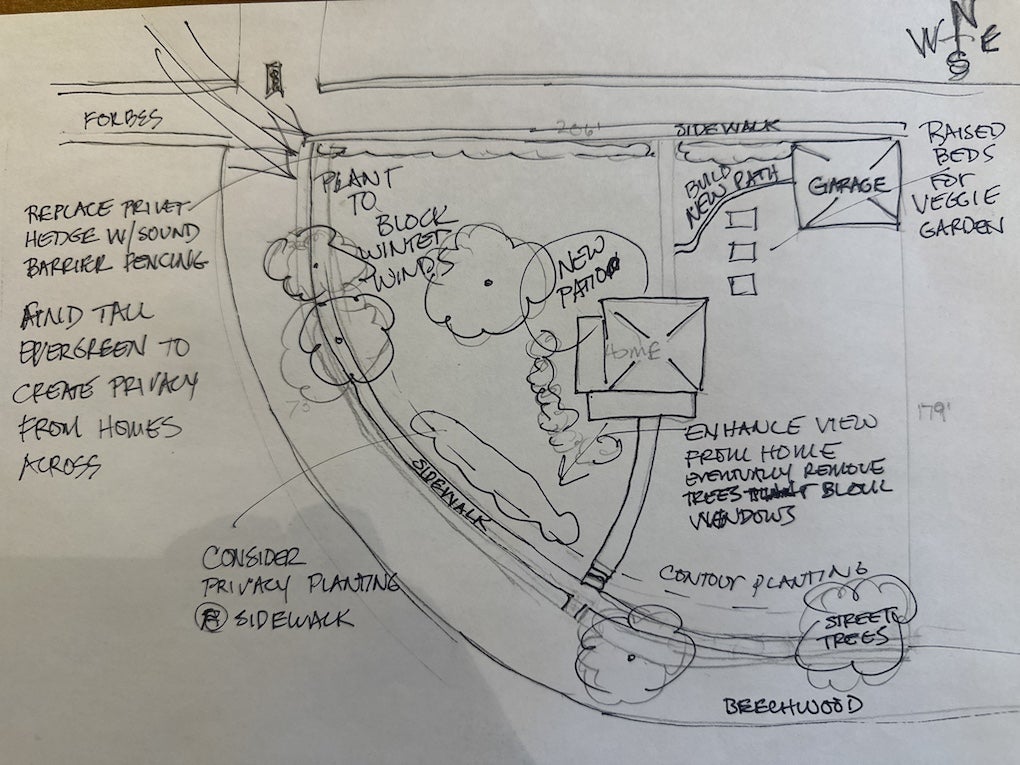 N
W E
S
FORBES
206'
SIDEWALK
RAISED
BEDS
FOR
VEGGIE
GARDEN
GARAGE
BUILD
NEW PATH
PLANT
TO
BLOCK
WINTER
WINDS
REPLACE PRIVET
HEDGE W/SOUND
BARRIER FENCING
NEW
PATIO
FIND TALL
EVERGREEN TO
CREATE PRIVACY
FROM HOMES
ACROSS
HOME
179'
ENHANCE VIEW
FROM HOME
EVENTUALLY REMOVE
TREES BLOCK
WINDOWS
SIDEWALK
CONSIDER
PRIVACY PLANTING
SIDEWALK
CONTOUR PLANTING
STREET
TREES
BEECHWOOD